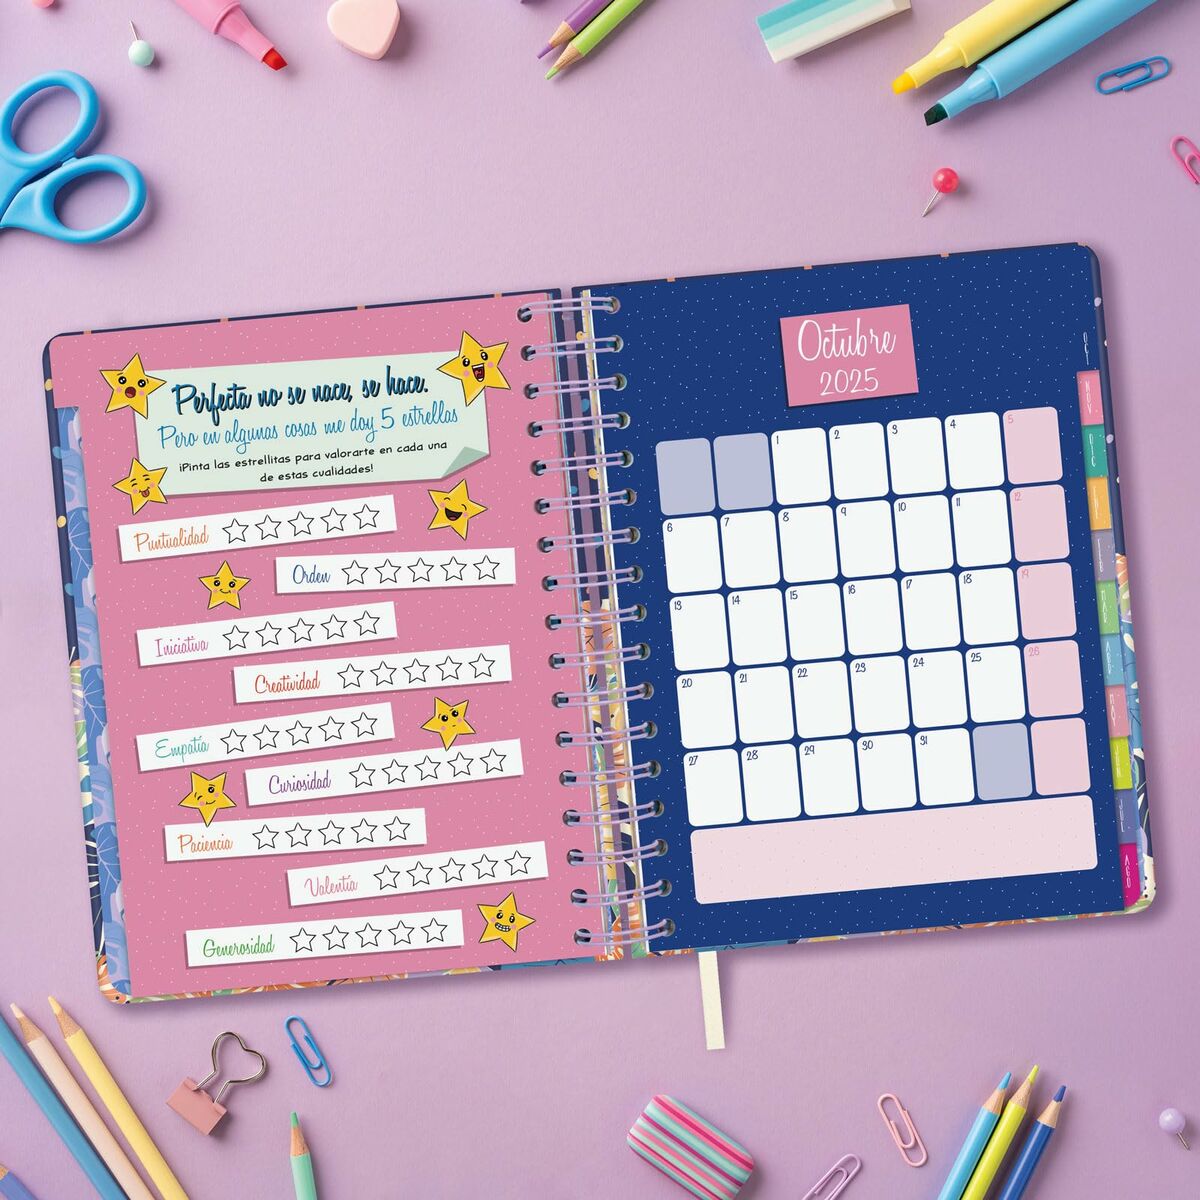 Perfecta no se nace, se hace.
Pero en algunas cosas me doy 5 estrellas
¡Pinta las estrellitas para valorarte en cada una
de estas cualidades!
Puntualidad
Orden
Iniciativa
Creatividad
Empatía
Curiosidad
Paciencia
Valentía
Generosidad
Octubre
2025
1 2 3 4 5
6 7 8 9 10 11 12
13 14 15 16 17 18 19
20 21 22 23 24 25 26
27 28 29 30 31
NOV
DIC
AGO